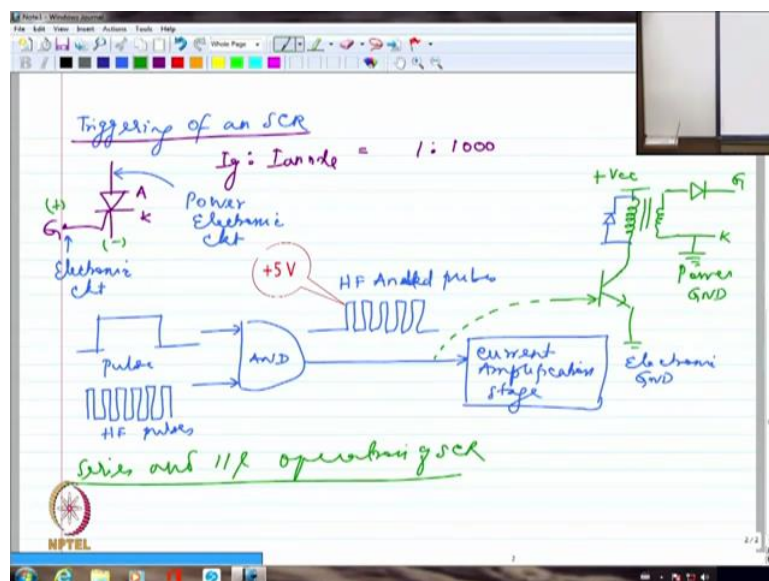 Note1 - Windows Journal
File Edit View Insert Actions Tools Help
Whole Page
Triggering of an SCR
Ig : Ianode = 1 : 1000
+Vcc
(+)
G
A
K
(-)
Power
Electronic
Ckt
Electronic
Ckt
G
K
Power
GND
+5 V
HF Anded pulses
Pulse
AND
HF pulses
Current
Amplification
stage
Electronic
GND
Series and 11l operation of SCR
NPTEL
2/2